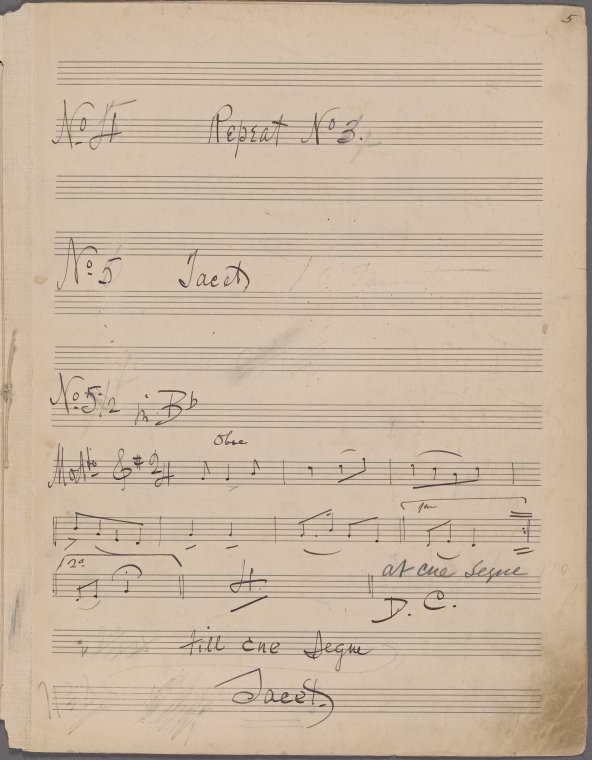 5
No 4 Repeat No 3.
No 5 Tacet
No 5 1/2 in Bb
Oboe
Modto 2/4
1ma
2a 4. at cue Segue
D. C.
till cue Segue
Tacet.